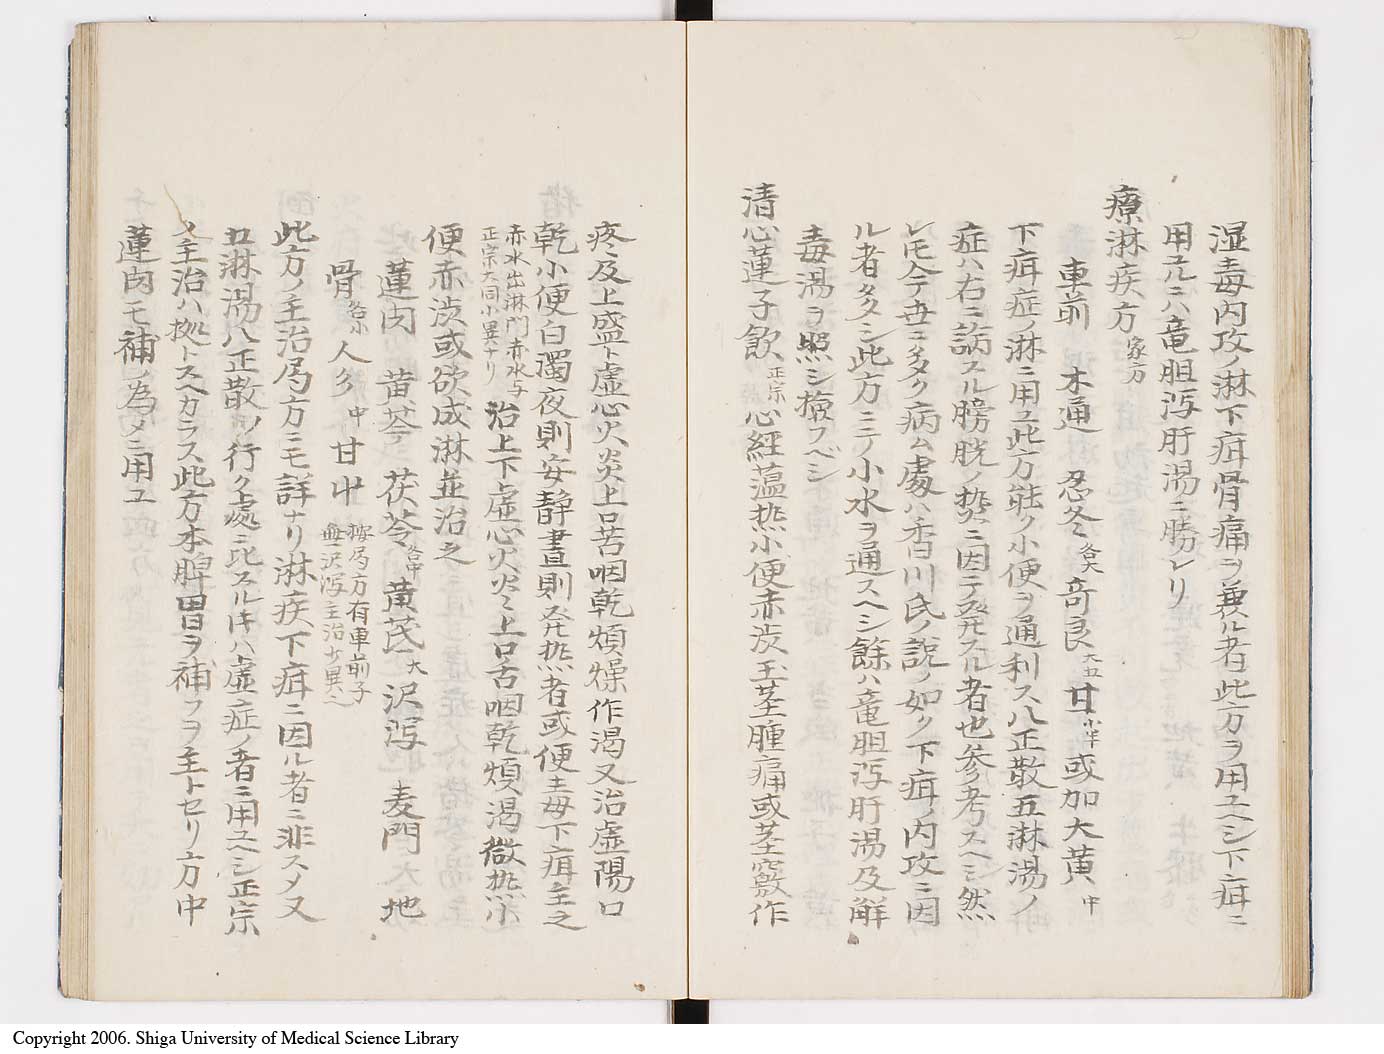 湿毒内攻ノ淋下疳骨痛ヲ兼ル者此方ヲ用ユヘシ下疳ニ
用ルニハ竜胆泻肝湯ニ勝レリ
療淋疾方 家方
車前 木通 忍冬 各大 奇良 大五 甘 小半 或加大黄 中
下疳症ノ淋ニ用ユ此方能ク小便ヲ通利ス八正散五淋湯ノ
症ハ右ニ論スル膀胱ノ熱ニ因テ発スル者也参考スヘシ然
レ𪜈今世ニ多ク病ム處ハ香川氏ノ説ノ如ク下疳ノ内攻ニ因
ル者多シ此方ニテ小水ヲ通スヘシ餘ハ竜胆泻肝湯及解
毒湯ヲ照シ撿フベシ
清心蓮子飲 正宗 心経蘊热小便赤渋玉茎腫痛或茎竅作
疼及上盛下虚心火炎上口苦咽乾煩燥作渇又治虚陽口
乾小便白濁夜則安静晝則発热者或便毒下疳主之
赤水出淋門赤水与
正宗大同小異ナリ 治上下虚心火炎上口舌咽乾煩渇微热小
便赤渋或欲成淋並治之
蓮肉 黄芩 茯苓 各中 黄芪 大 沢泻 麦門 大 地
骨 各小 人参 中 甘 中 按局方有車前子
無沢泻主治少異
此方ノ主治局方ニモ詳ナリ淋疾下疳ニ因ル者ニ非スメ又
五淋湯八正散ノ行ク處ニ比スル𪜈ハ虚症ノ者ニ用ユヘシ正宗
ノ主治ハ拠トスヘカラス此方本脾胃ヲ補フヲ主トセリ方中
蓮肉モ補ノ為メニ用ユ
Copyright 2006. Shiga University of Medical Science Library